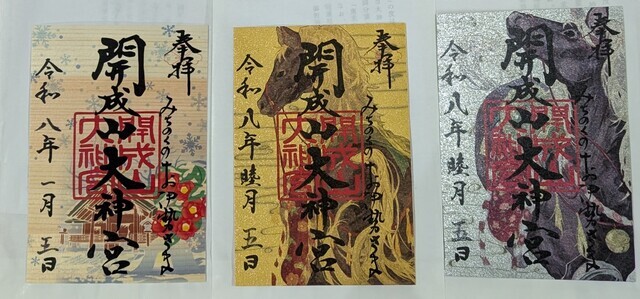 奉拝
みちのくのお伊勢さま
開成山大神宮
開成山大神宮
令和八年 一月 五日
奉拝
みちのくのお伊勢さま
開成山大神宮
開成山大神宮
令和八年 睦月 五日
奉拝
みちのくのお伊勢さま
開成山大神宮
開成山大神宮
令和八年 睦月 五日